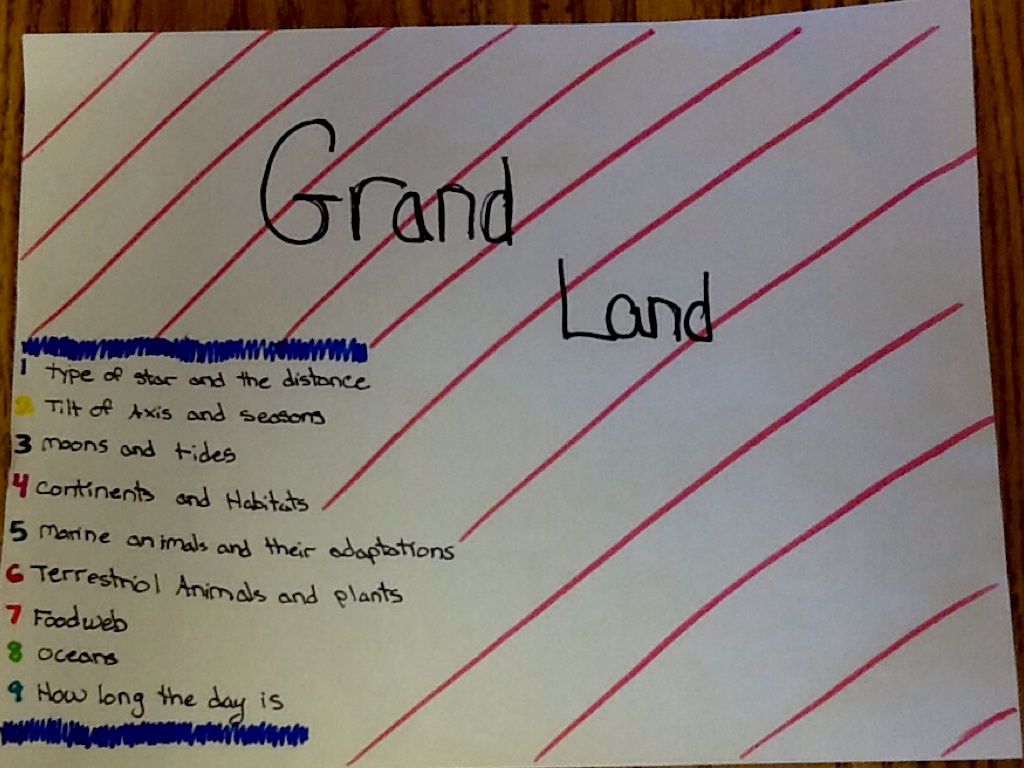 Grand
Land
1 type of star and the distance
2 Tilt of Axis and seasons
3 moons and tides
4 continents and Habitats
5 Marine animals and their adaptations
6 Terrestriol Animals and plants
7 Foodweb
8 oceans
9 How long the day is